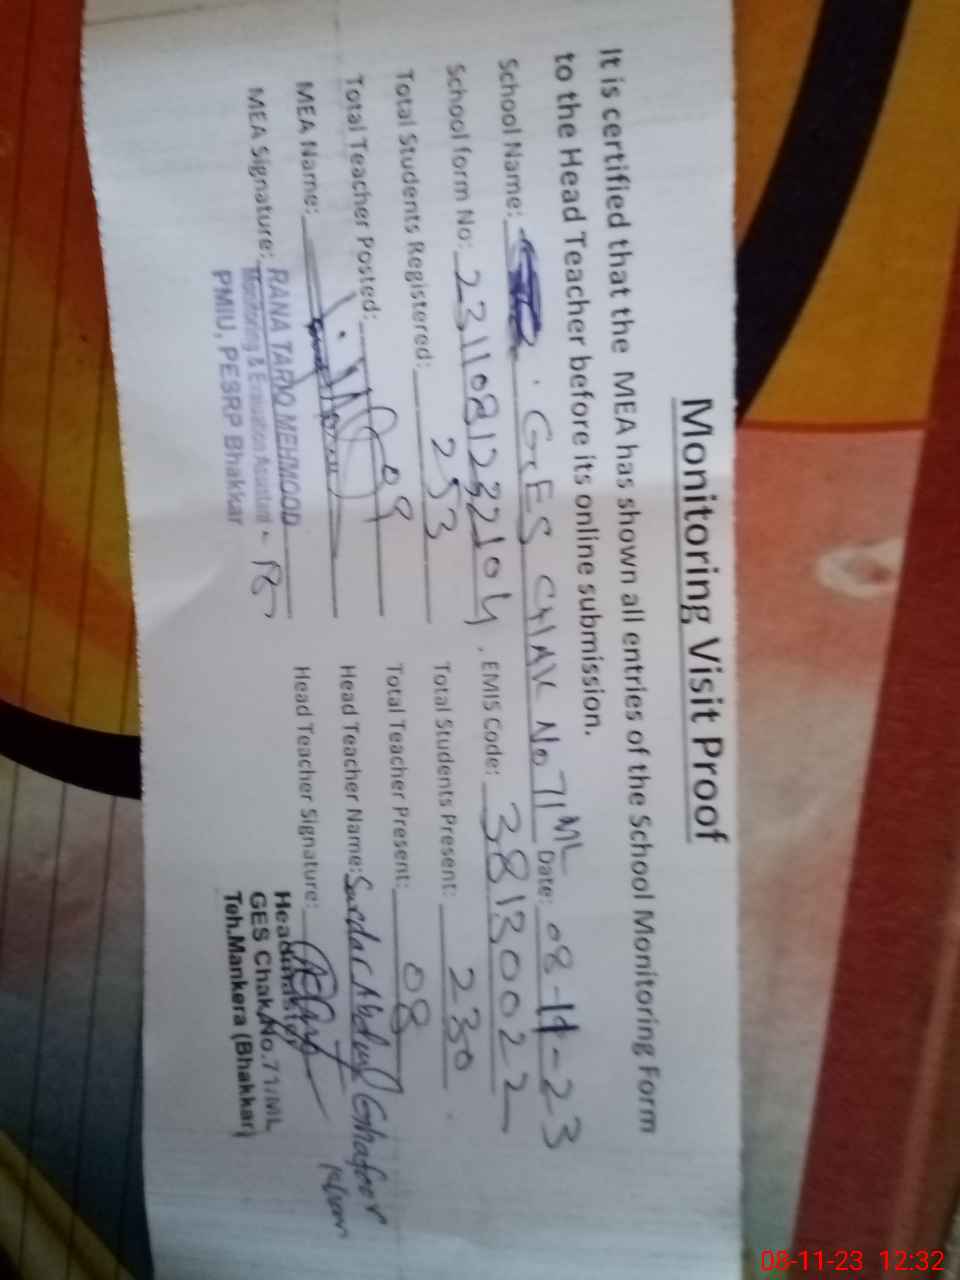 Monitoring Visit Proof
It is certified that the MEA has shown all entries of the School Monitoring Form
to the Head Teacher before its online submission.
School Name: GES CHAK No 71 ML Date: 08-11-23
School form No: 23110812322104, EMIS Code: 38130022
Total Students Registered: 253 Total Students Present: 230
Total Teacher Posted: 09 Total Teacher Present: 08
MEA Name: Head Teacher Name: Sardar Abdul Ghafoor
MEA Signature: Head Teacher Signature:
RANA TARIQ MEHMOOD
Monitoring & Evaluation Assistant - 18
PMIU, PESRP Bhakkar
Headmaster
GES Chak No.71/ML
Teh.Mankera (Bhakkar)
08-11-23 12:32